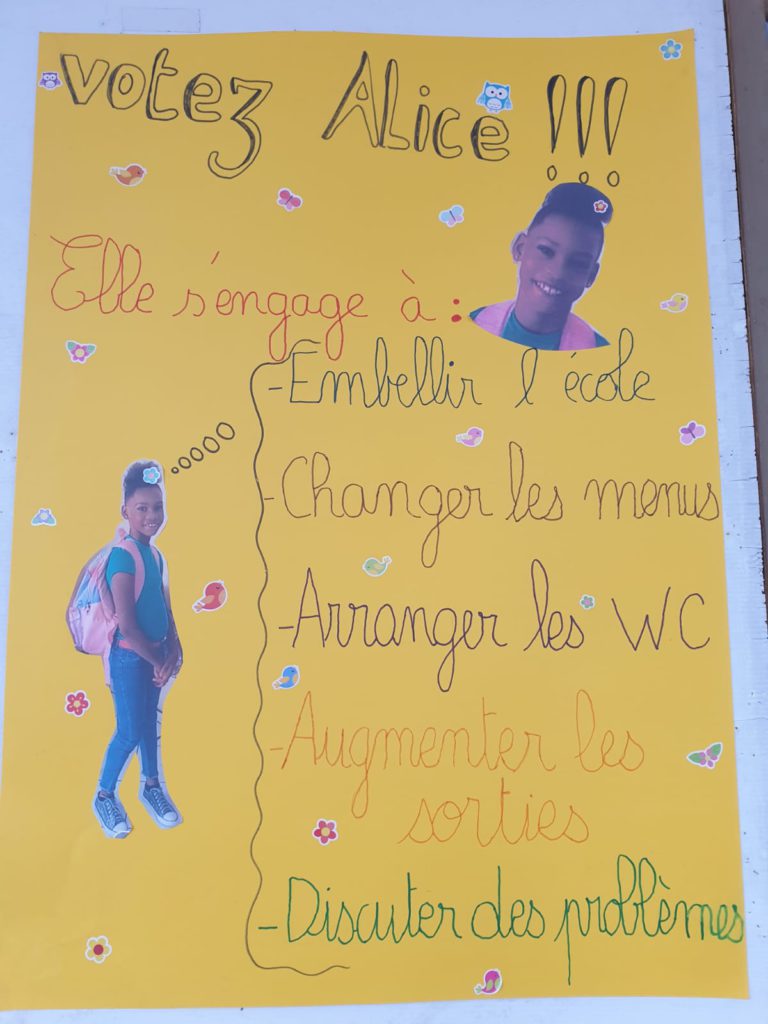 votez Alice !!!
Elle s'engage à :
-Embellir l'école
-Changer les menus
-Arranger les WC
-Augmenter les
sorties
-Discuter des problèmes